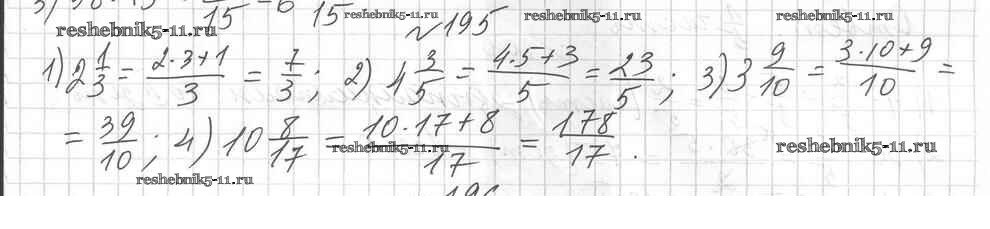 15 15
reshebnik5-11.ru reshebnik5-11.ru
reshebnik5-11.ru №195
1) 2 1/3 = (2·3+1)/3 = 7/3; 2) 4 3/5 = (4·5+3)/5 = 23/5; 3) 3 9/10 = (3·10+9)/10 =
= 39/10; 4) 10 8/17 = (10·17+8)/17 = 178/17.
reshebnik5-11.ru reshebnik5-11.ru
reshebnik5-11.ru